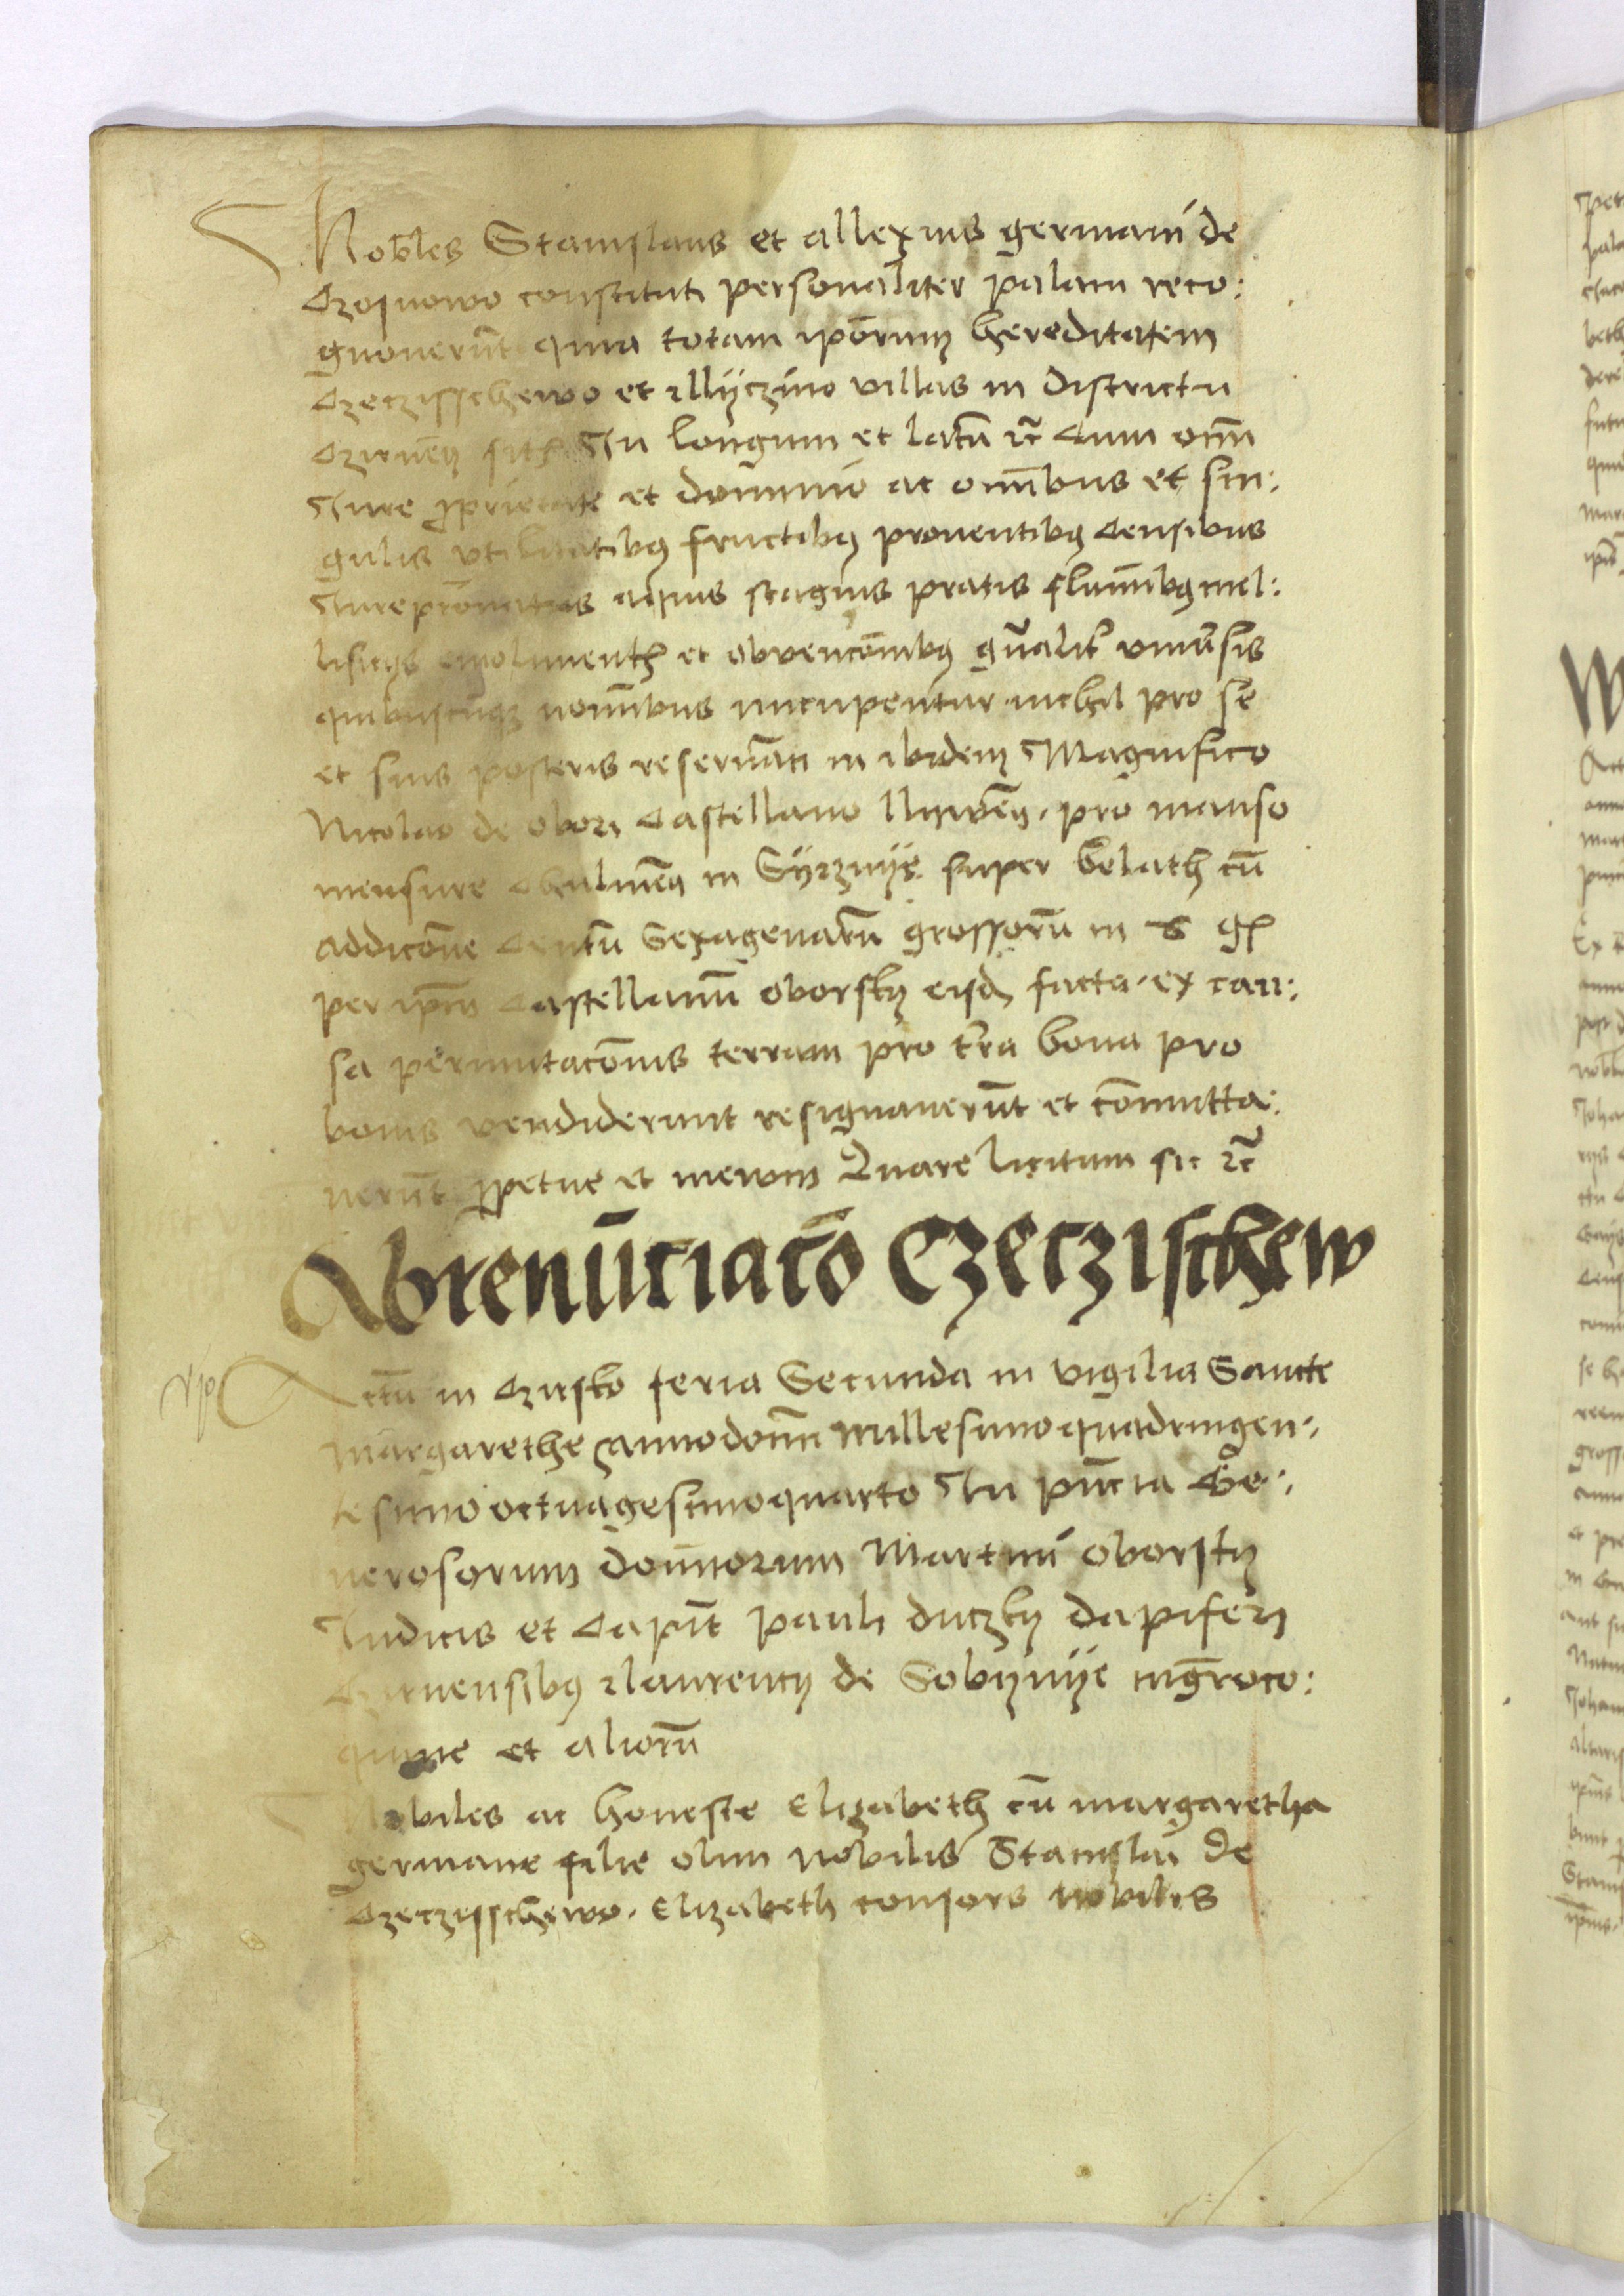 Nobles Stanislaus et allexius germani de
Czosnowo constituti personaliter palam reco:
gnoverūt quia totam ipōrum hereditatem
Czeczisschewo et illÿczino villas in districtu
Czirneñ sitas In longum et latū etc̃ Cum om̄i
Iure ꝓprietate et dominio ac om̄ibus et sin:
gulis vtilitatibus fructibus proventibus Censibus
Iurepr̄onatus aquis stagnis pratis fluīibus mel:
lificiis emolimentis et obvencōnibus gn̄aliter vniūsis
quibuscūqz nomībus nucupentur nichil pro se
et suis posteris reservan̄ti in ibidem Magnifico
Nicolao de obori Castellano pro manso
mensure Chulmēn in super belath cū
addicōne Centū Sexagenarū grossorū in gr
per ipm̄ Castellanū oborsky eisdem facta ex cau:
sa permutacōnis terram pro tr̄ra bona pro
bonis vendiderunt resignaverūt et cōmutta:
verūt ꝑpetue et inewm Quare licitum sit etc̃
Abrenūciacō Czeczischew
Actū in Czirsko feria Secunda in vigilia Sancte
Margarethe Annodomī Millesimoquadringen:
tesimooctuagesimoquarto In pn̄cia Ge:
nerosorum domīorum Martini oborsky
Iudicis et Capit̄ pauli duczky dapiferi
Czirnensibus laurencii de Sobÿnÿe
et aliorū
Nobiles ac honeste Elizabeth cū margaretha
germane filie olim nobilis Stanislai de
Czeczisschewo. Elizabeth consors nobilis